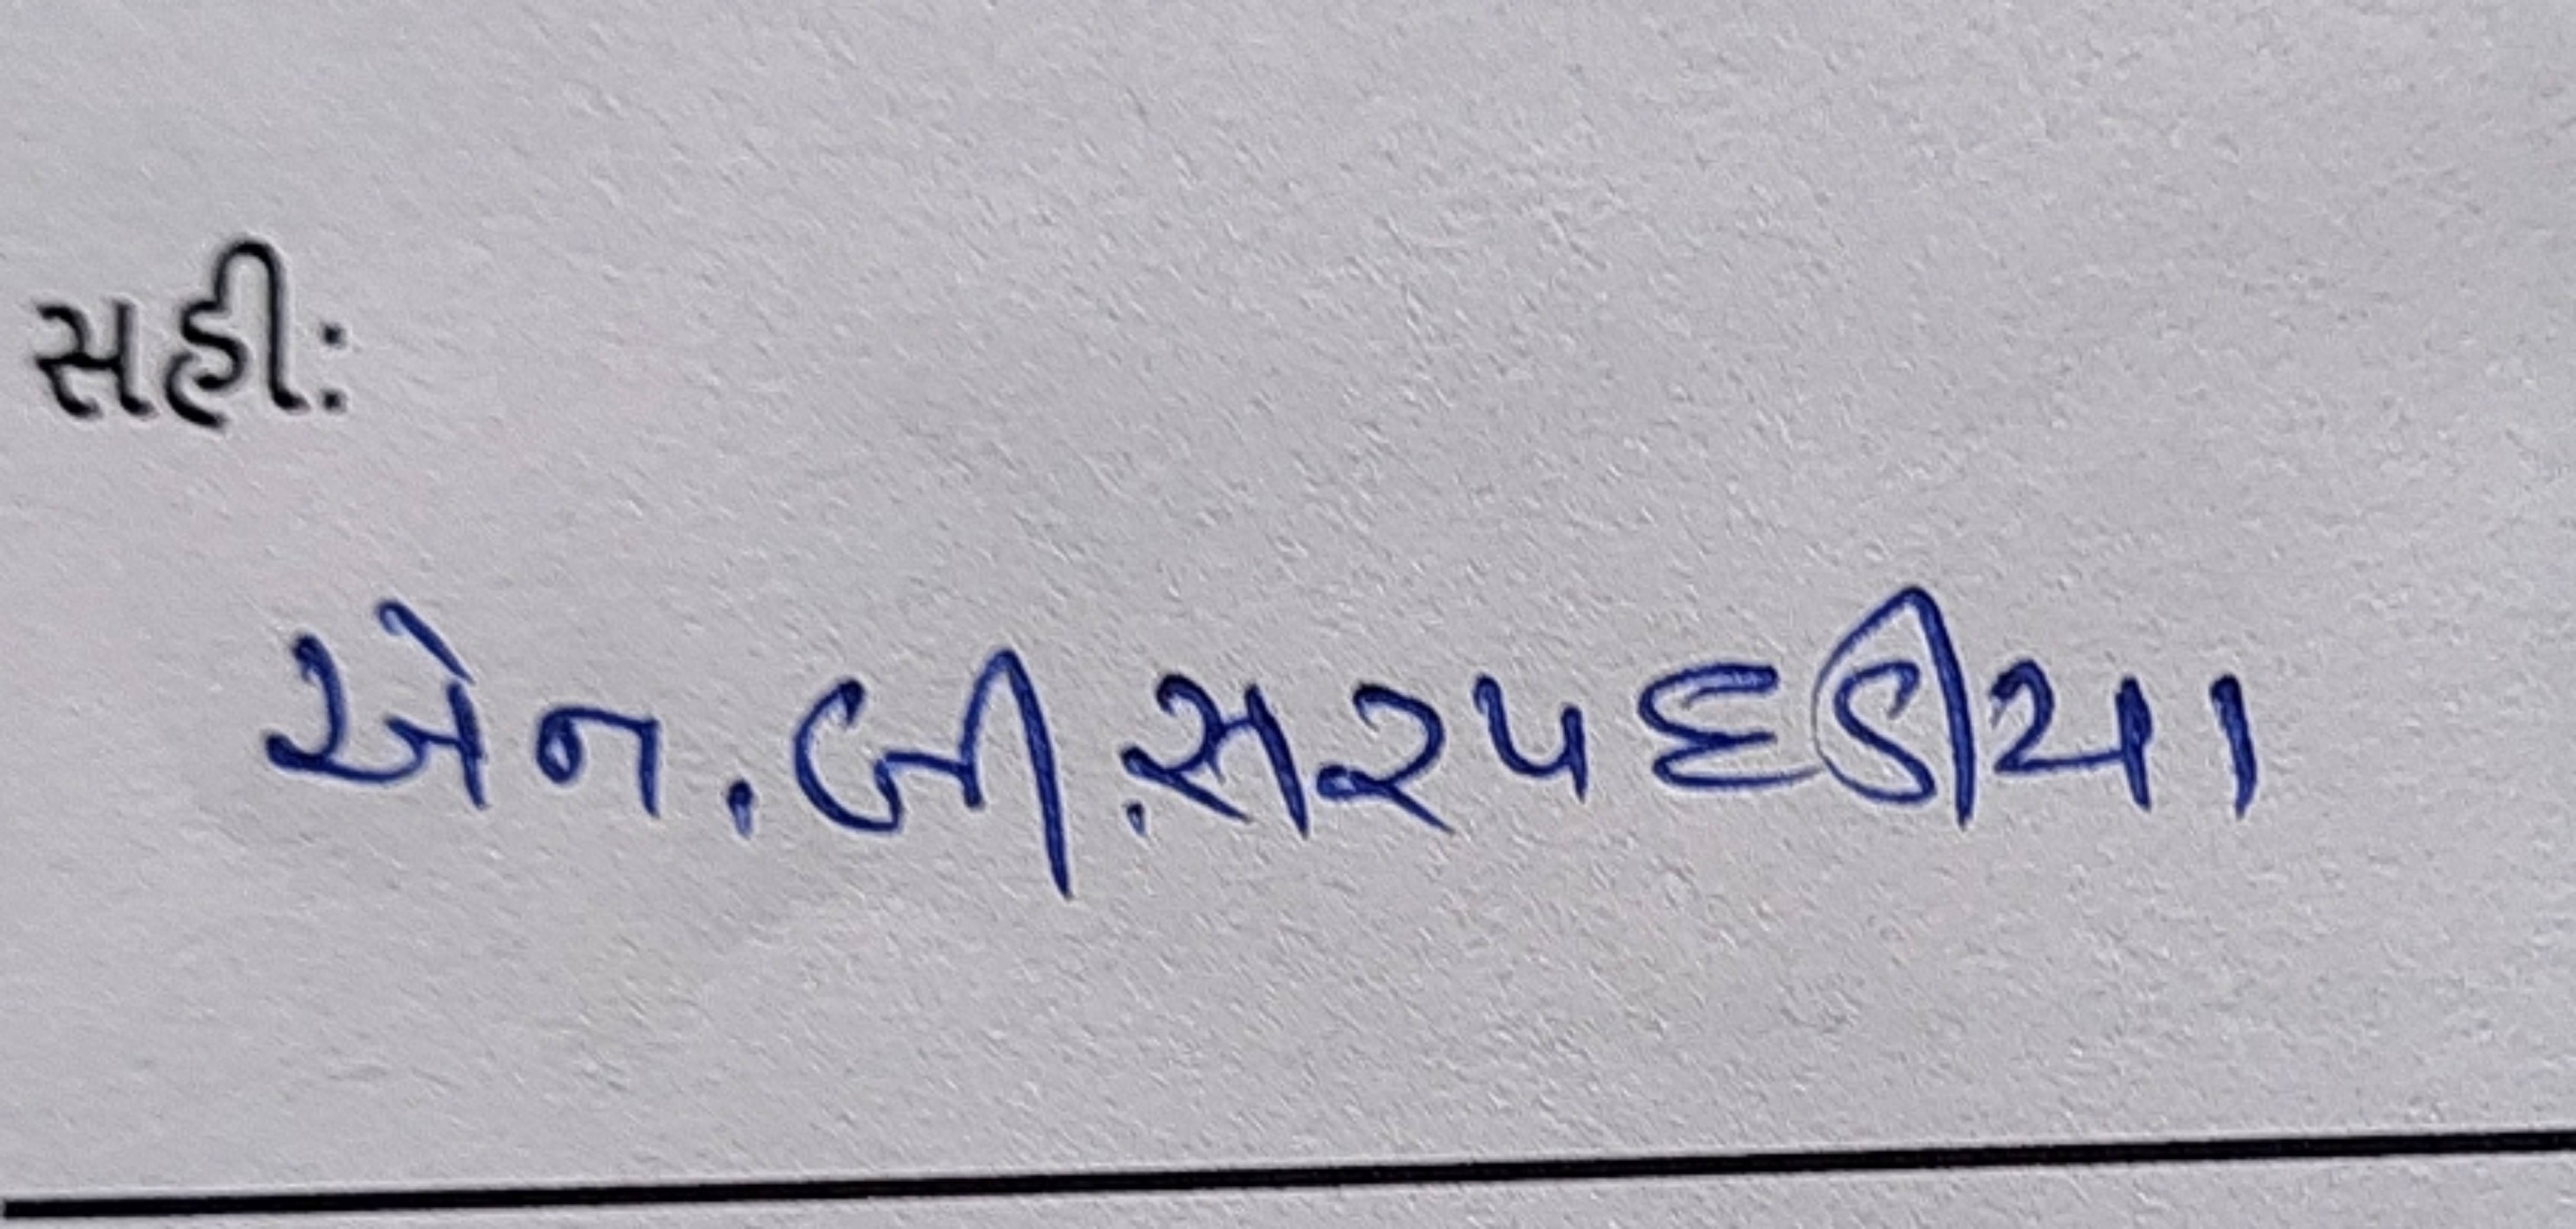 સહી:
એન.બી.સરપદડીયા